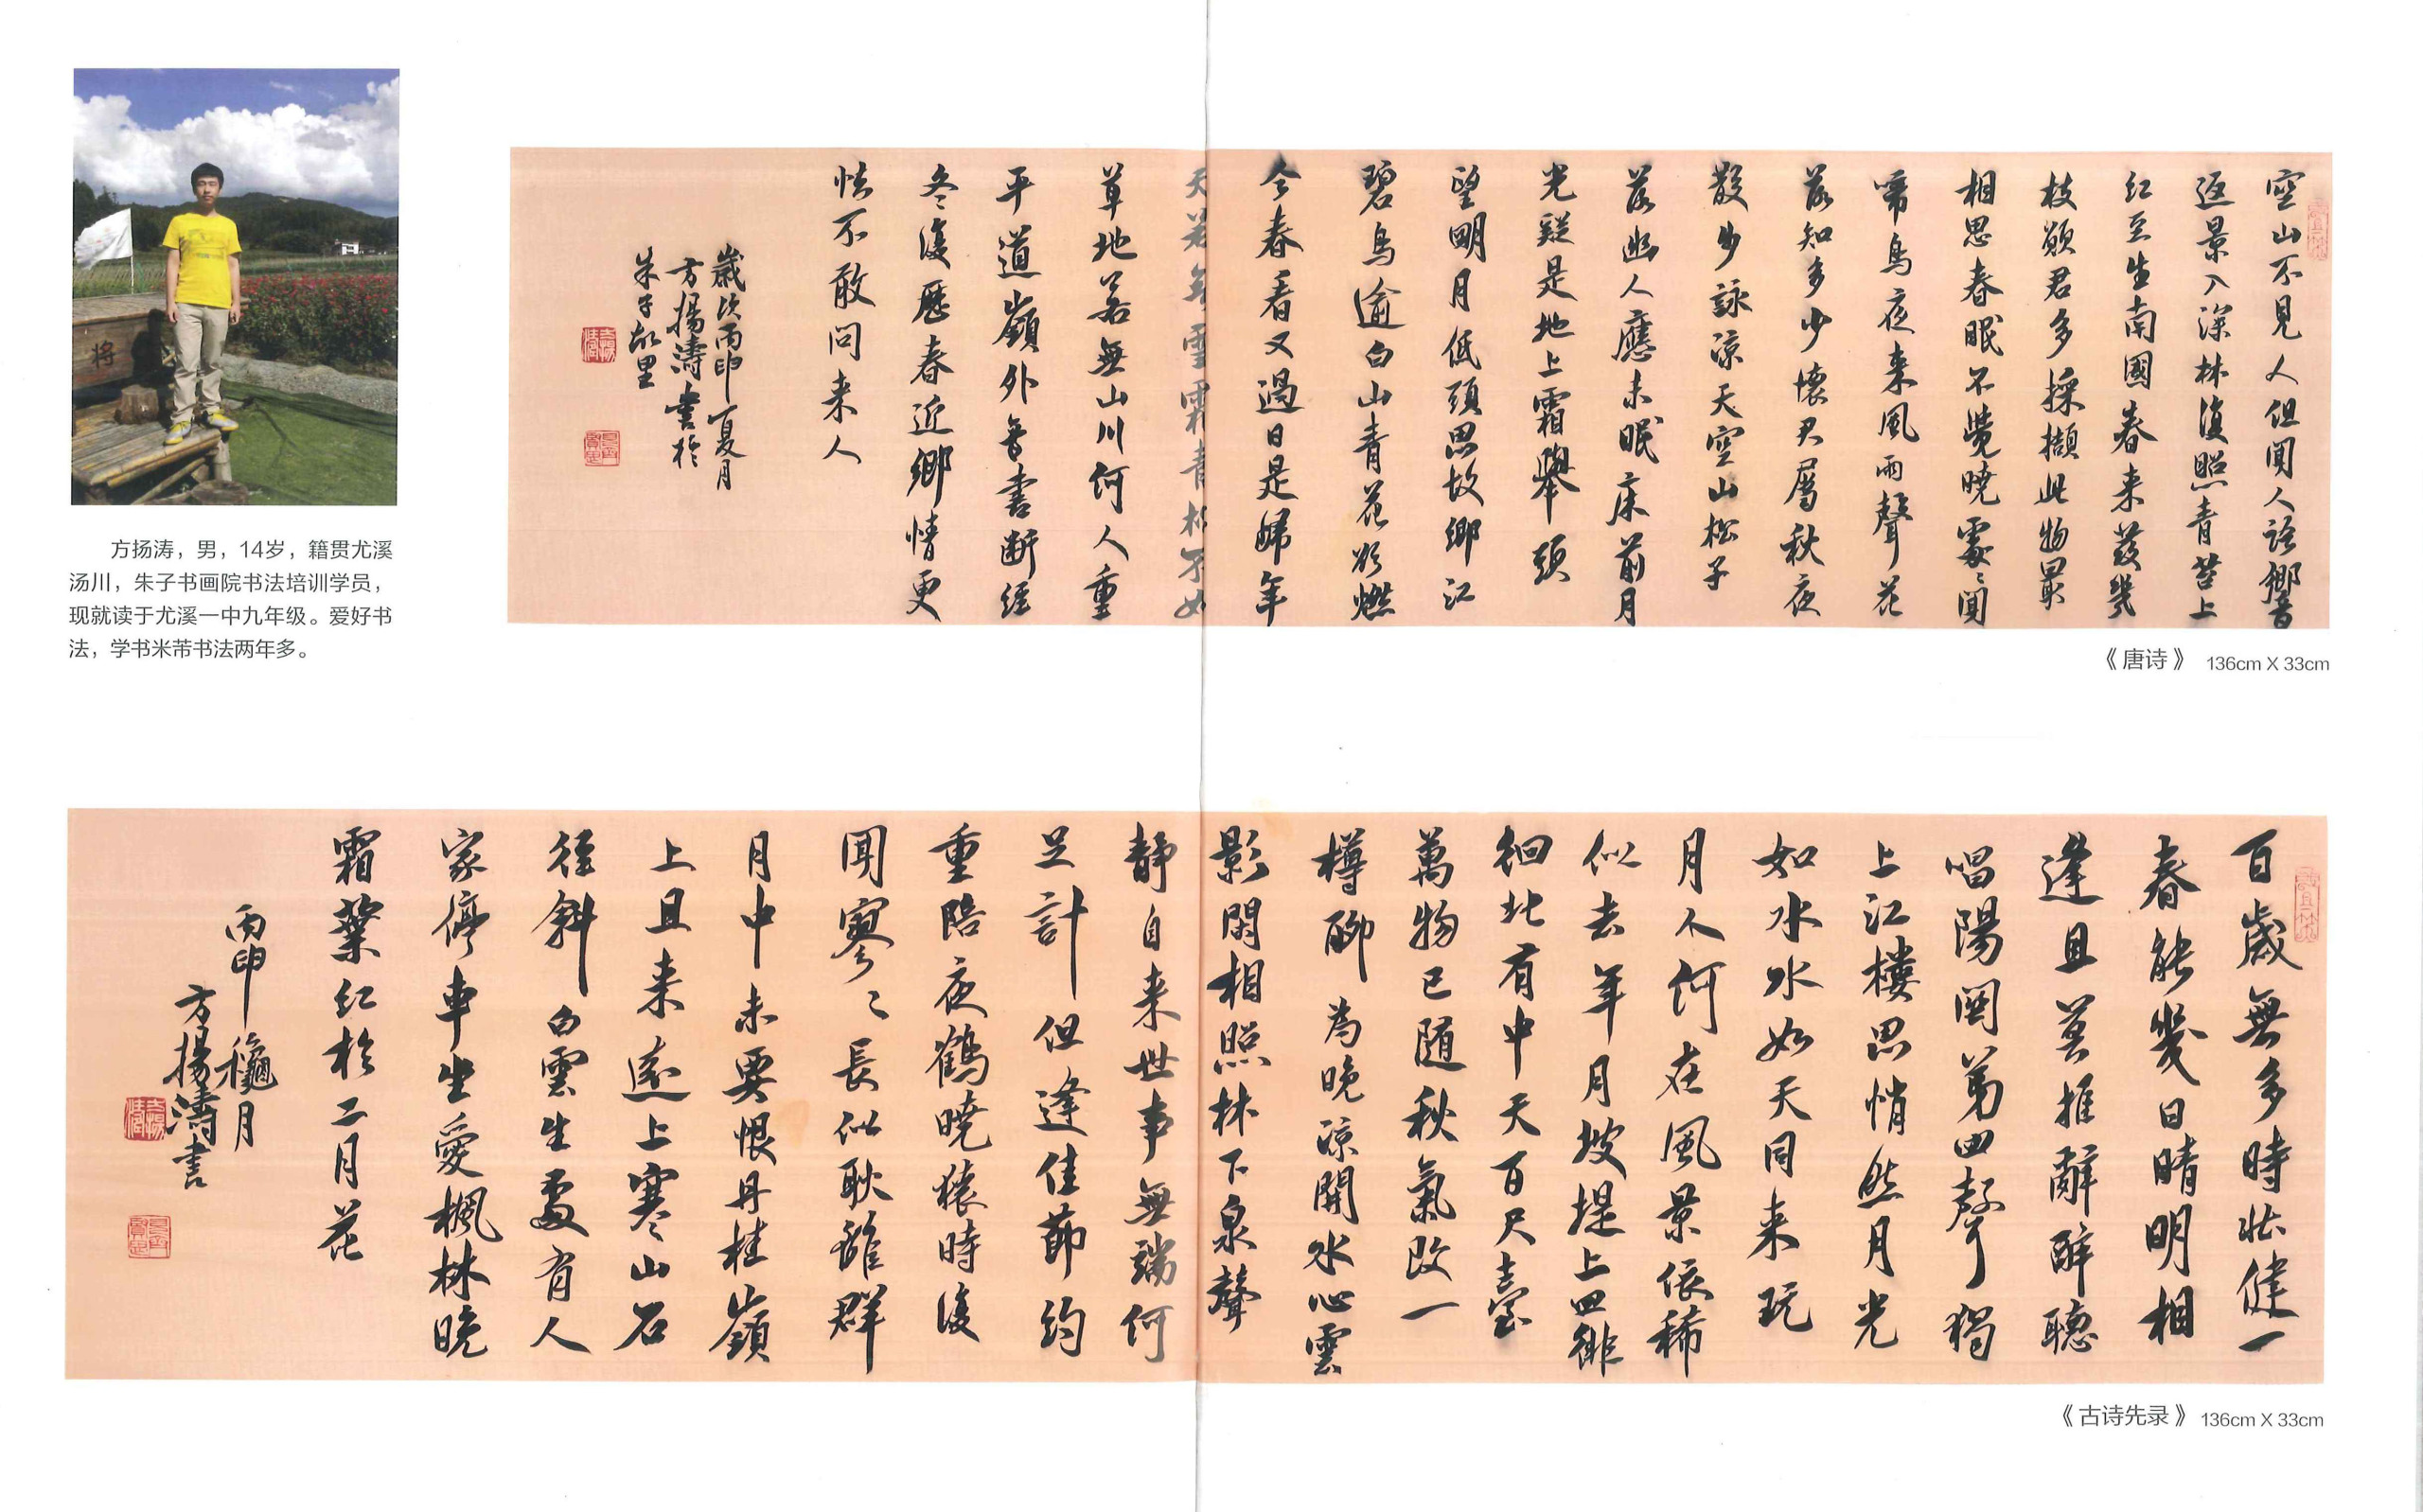 将
方扬涛，男，14岁，籍贯尤溪
汤川，朱子书画院书法培训学员，
现就读于尤溪一中九年级。爱好书
法，学书米芾书法两年多。
空山不見人但聞人語響
返景入深林復照青苔上
红豆生南國春来發幾
枝願君多採擷此物最
相思春眠不覺曉處〻聞
啼鳥夜来風雨聲花
落知多少懷君屬秋夜
散步詠涼天空山松子
落幽人應未眠床前月
光疑是地上霜舉頭
望明月低頭思故鄉江
碧鳥逾白山青花欲燃
今春看又過日是歸年
天若無雪霜青松不如
草地若無山川何人重
平道嶺外音書斷經
冬復歷春近鄉情更
怯不敢問来人
歲次丙申夏月
方揚濤書於
朱子故里
《唐诗》 136cm X 33cm
百歲無多時壯健一
春能幾日晴明相
逢且莫推辭醉聽
唱陽関第四聲獨
上江樓思悄然月光
如水水如天同来玩
月人何在風景依稀
似去年月坡堤上四徘
徊北有中天百尺臺
萬物已随秋氣改一
樽聊為晚涼開水心雲
影閑相照林下泉聲
静自来世事無端何
足計但逢佳節約
重陪夜鶴曉猿時復
聞寥〻長似耿離群
月中未要恨丹桂嶺
上且来遠上寒山石
徑斜白雲生處有人
家停車坐愛楓林晚
霜葉红於二月花
丙申龝月
方揚濤書
《古诗先录》 136cm X 33cm